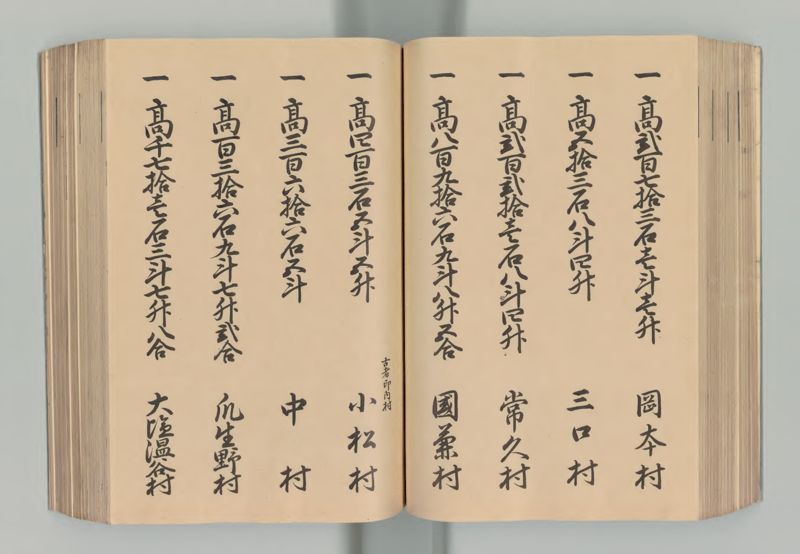 一 高弐百七拾三石壱斗壱升 岡本村
一 高五拾三石八斗四升 三口村
一 高弐百弐拾壱石八斗四升 常久村
一 高八百九拾六石九斗八升五合 國兼村
一 高四百三石五斗五升 小松村
古者印内村
一 高三百六拾六石五斗 中村
一 高百三拾六石九斗七升弐合 瓜生野村
一 高千七拾壱石三斗七升八合 大塩温谷村